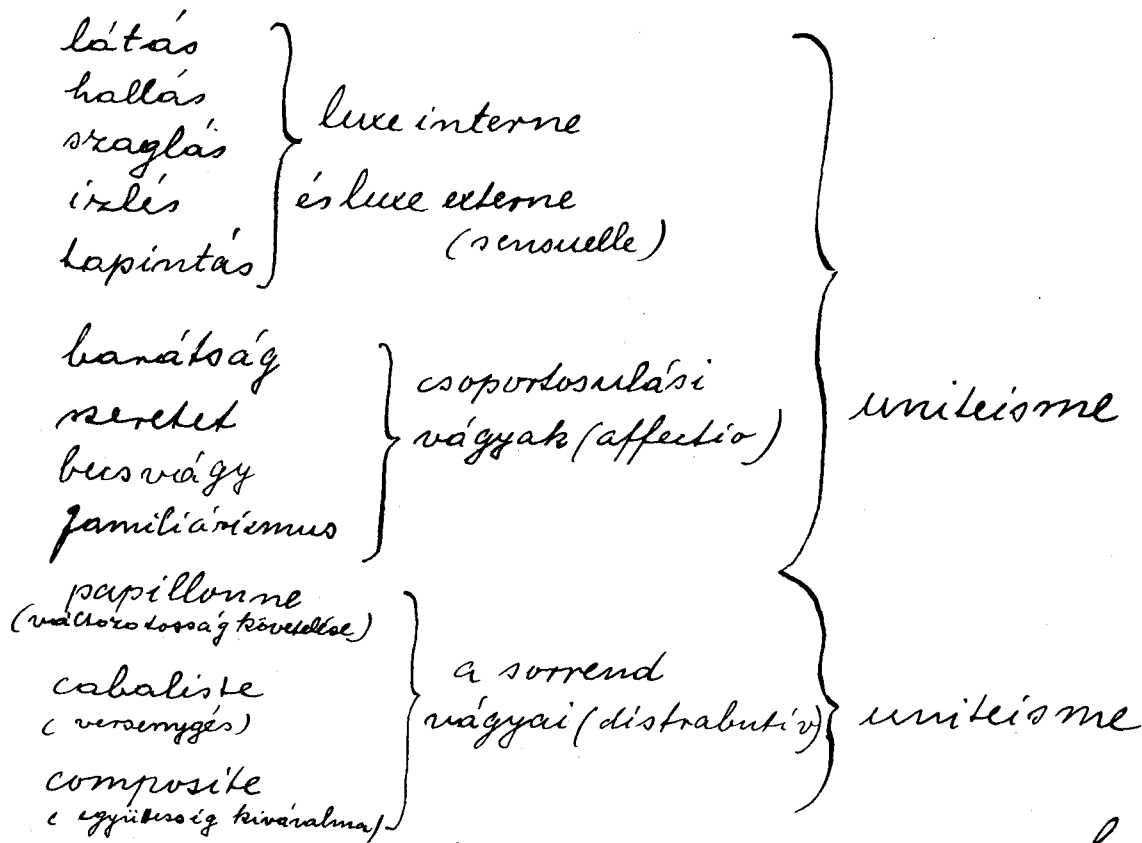 látás
hallás
szaglás
izlés
tapintás
luxe interne
és luxe externe
(sensuelle)
barátság
szeretet
becsvágy
familiárizmus
csoportosulási
vágyak (affectio)
uniteisme
papillonne
(változatosság követelése)
cabaliste
(versengés)
composite
(együttesség kivánalma)
a sorrend
vágyai (distrabutív)
uniteisme